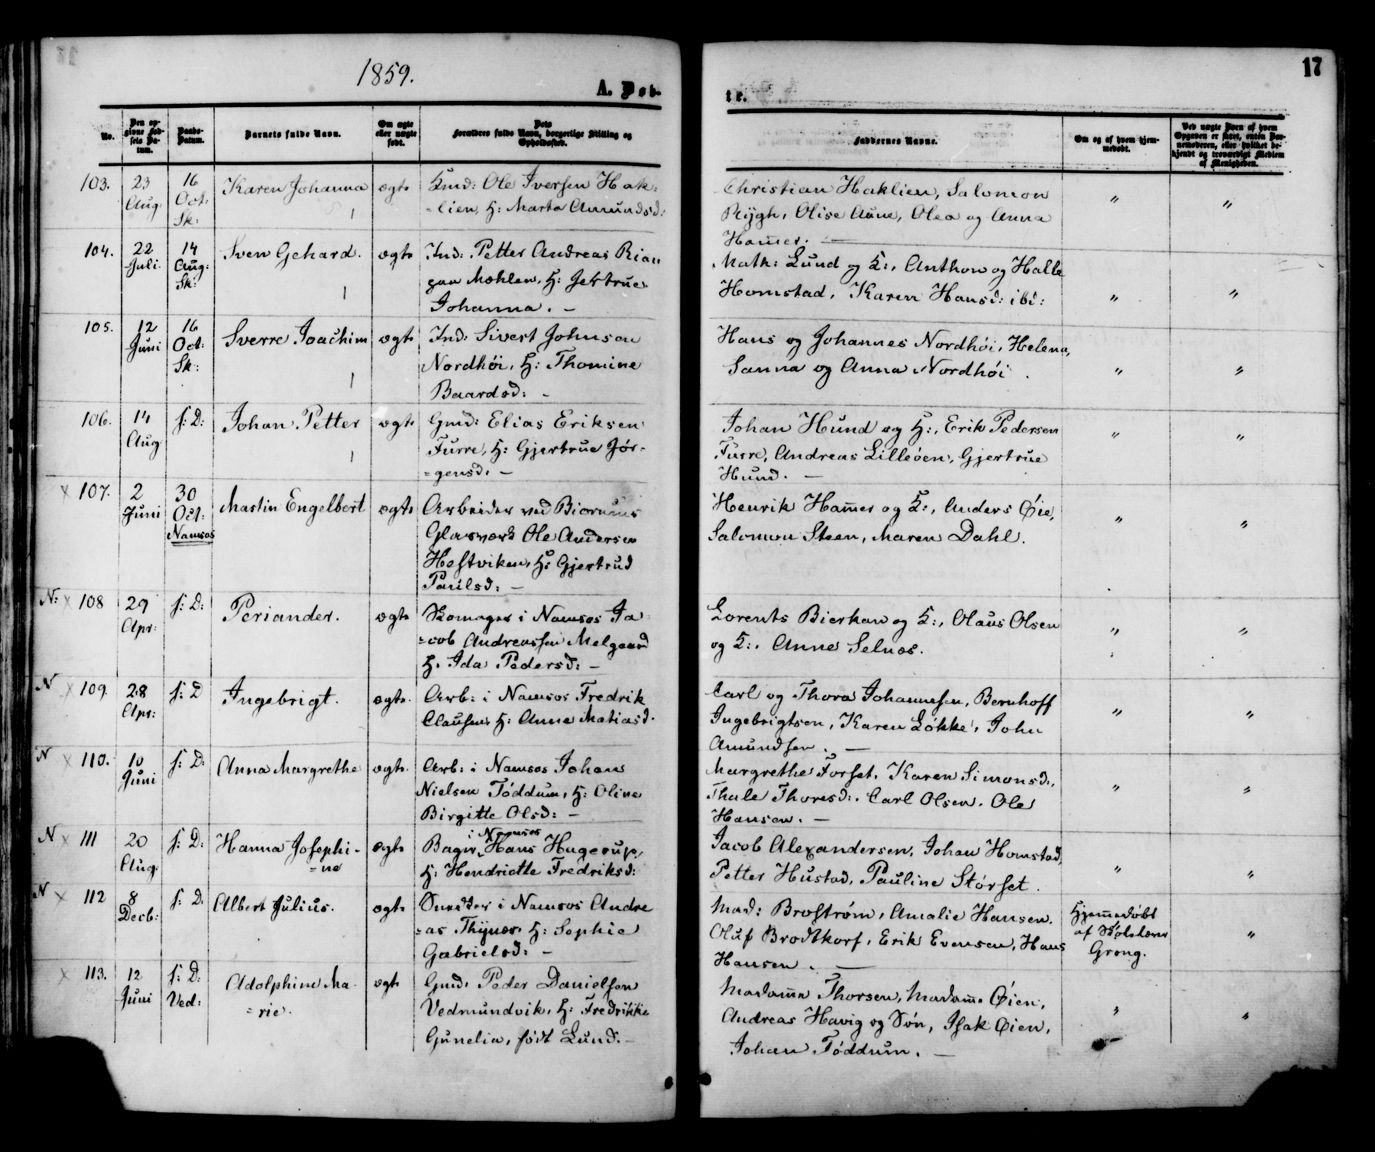 1859.
A. Døb-
te.
17
No.
Den op-
givne Fød-
sels Da-
tum.
Daabs-
Datum.
Barnets fulde Navn.
Om ægte
eller uægte
født.
Dets
Forældres fulde Navn, borgerlige Stilling og
Opholdssted.
Faddernes Navne.
Om og af hvem hjem-
medøbt.
Ved uægte Børn af hvem
Opgaven er skeet, enten Bar-
nemoderen, eller hvilket be-
kjendt og troværdigt Medlem
af Menigheden.
103. 23 Aug 16 Oct: Sk: Karen Johanna ægte Gmd: Ole Iversen Hak-
=lien, H: Marta Amundsd:
Christian Haklien, Salomon
Rygh, Olise Aune, Olea og Anna
Hamer. — " "
104. 22 Juli 14 Aug: Sk: Sven Gehard. ægte Ind: Petter Andreas
Mæhlen, H: Jertrue
Johanna. —
Math: Lund og K:, Anthon og Halle
Homstad, Karen Hansd: ibd: " "
105. 12 Juni 16 Oct: Sk: Sverre Joachim ægte Ind: Sivert Johnson
Nordhöi, H: Thomine
Baardsd: —
Hans og Johannes Nordhöi, Helena,
Sanna og Anna Nordhöi. " "
106. 14 Aug s: D: Johan Petter ægte Gmd: Elias Eriksen
Furre, H: Gjertrue Jør-
=gensd: —
Johan Hund og H:, Erik Pedersen
Furre, Andreas Lilleöen, Gjertrue
Hund. — " "
x 107. 2 Juni 30 Oct: Namsos Martin Engelbert ægte Arbeider ved Biørums
Glasværk Ole Andersen
Høstviken, H: Gjertrud
Paulsd: —
Henrik Hamer og K:, Anders Øie,
Salomon Steen, Maren Dahl. " "
N: x 108 29 Apr: s: D: Periander. ægte Skomager i Namsos Ja-
=cob Andreassen Melgaard
H: Ida Pedersd: —
Lorents Bierkan og K:, Olaus Olsen
og K:, Anne Selnæs. " "
N x 109. 28 Apr: s: D Ingebrigt. ægte. Arb: i Namsos Fredrik
Clausen, H: Anna Matiasd.
Carl og Thora Johannesen, Bernhoff
Ingebrigtsen, Karen Løkke, John
Amundsen. — " "
N x 110. 10 Juni s: D: Anna Margrethe ægte. Arb: i Namsos Johan
Nielsen Töddum, H: Oline
Birgitte Olsd: —
Margrethe Forset, Karen Simonsd:,
Thale Thoresd:. Carl Olsen. Ole
Hansen. — " "
N x 111 20 Aug. s: D: Hanna Josephi-
=ne ægte Bager i Namsos Hans Hugerup,
H: Hendriette Fredriksd:
Jacob Alexandersen, Johan Homstad,
Petter Hustad, Pauline Størset. " "
N x 112 8 Decb: s: D. Albert Julius. ægte Snedker i Namsos Andre
=as Thynæs, H: Sophie
Gabrielsd: —
Mad: Broström, Amalie Hansen.
Oluf Brodtkorf, Erik Evensen, Hans
Hansen. —
Hjemmedøbt
af
Grong. "
x 113. 12 Juni s: D: Ved: Adolphine Ma-
=rie. ægt Gmd: Peder Danielsen
Vedmundvik, H: Fredrikke
Gunelia, født Lund. —
Madama Thorsen, Madame Øien,
Andreas Havig og Søn, Isak Øien,
Johan Töddum. — " "